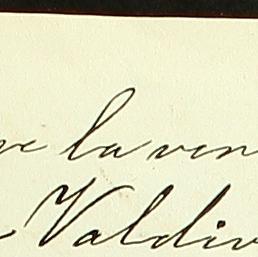 la ven
Valdiv